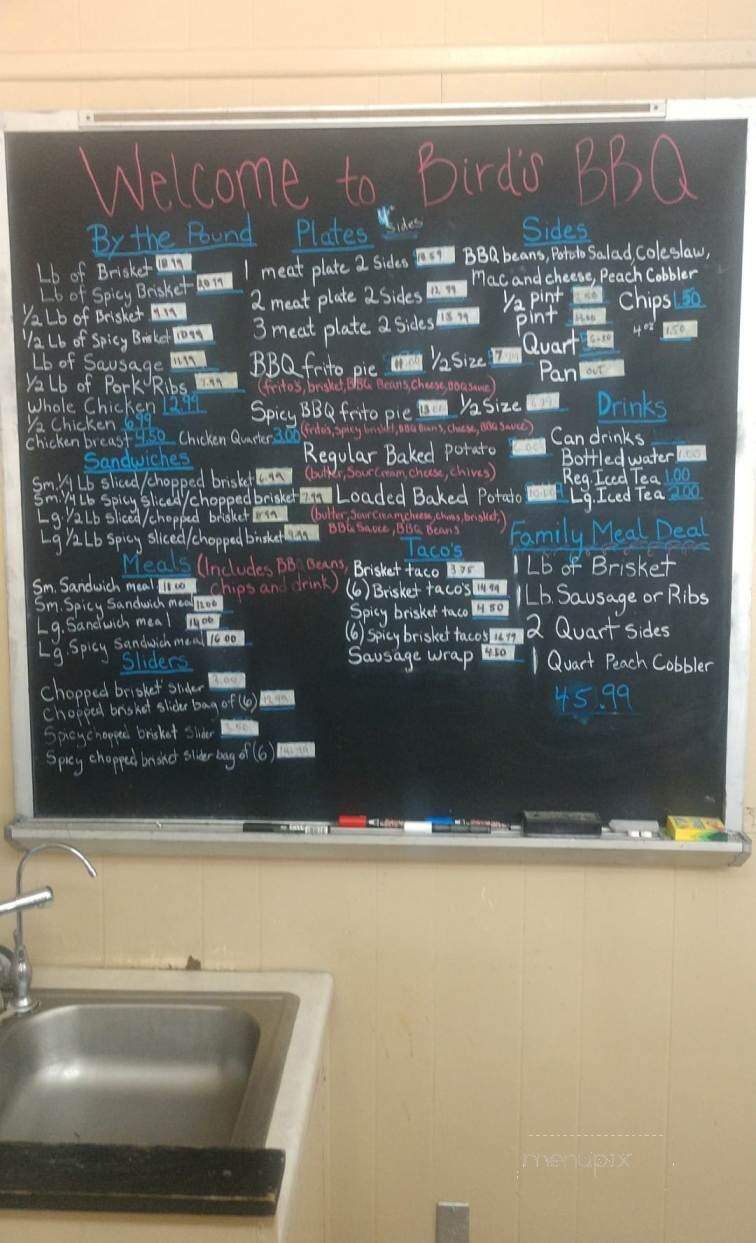 Welcome to Bird's BBQ
By the Pound
Lb of Brisket 18.99
Lb of Spicy Brisket 20.99
1/2 Lb of Brisket 9.99
1/2 Lb of Spicy Brisket 10.99
Lb of Sausage 11.99
1/2 Lb of Pork Ribs 7.99
Whole Chicken 12.99
1/2 Chicken 6.99
Chicken breast 4.50 Chicken Quarter 3.00
Sandwiches
Sm. 1/4 Lb Sliced/chopped brisket 6.99
Sm. 1/4 Lb Spicy Sliced/chopped brisket 7.99
Lg. 1/2 Lb Sliced/chopped brisket 8.99
Lg 1/2 Lb Spicy Sliced/chopped brisket 9.99
Meals (Includes BBQ Beans,
chips and drink)
Sm. Sandwich meal 11.00
Sm. Spicy Sandwich meal 12.00
Lg. Sandwich meal 14.00
Lg. Spicy Sandwich meal 16.00
Sliders
Chopped brisket Slider 3.00
Chopped brisket slider bag of (6)
Spicy chopped brisket Slider 3.50
Spicy chopped brisket Slider bag of (6)
Plates Sides
1 meat plate 2 Sides
2 meat plate 2 Sides 12.99
3 meat plate 2 Sides
BBQ frito pie 1/2 Size
(frito's, brisket, BBQ Beans, Cheese, BBQ Sauce)
Spicy BBQ frito pie 1/2 Size
(frito's, Spicy brisket, BBQ Beans, Cheese, BBQ Sauce)
Regular Baked Potato
(butter, Sour Cream, cheese, chives)
Loaded Baked Potato
(butter, Sour Cream, cheese, chives, brisket,)
BBQ Sauce, BBQ Beans
Taco's
Brisket taco 3.75
(6) Brisket taco's 14.99
Spicy brisket taco 4.50
(6) Spicy brisket tacos 16.99
Sausage wrap 4.50
Sides
BBQ beans, Potato Salad, Coleslaw,
Mac and cheese, Peach Cobbler
1/2 pint Chips 1.50
pint
4 oz 1.50
Quart
Pan OUT
Drinks
Can drinks
Bottled water 1.00
Reg. Iced Tea 1.00
Lg. Iced Tea 2.00
Family Meal Deal
1 Lb of Brisket
1 Lb. Sausage or Ribs
2 Quart Sides
1 Quart Peach Cobbler
45.99
menupix